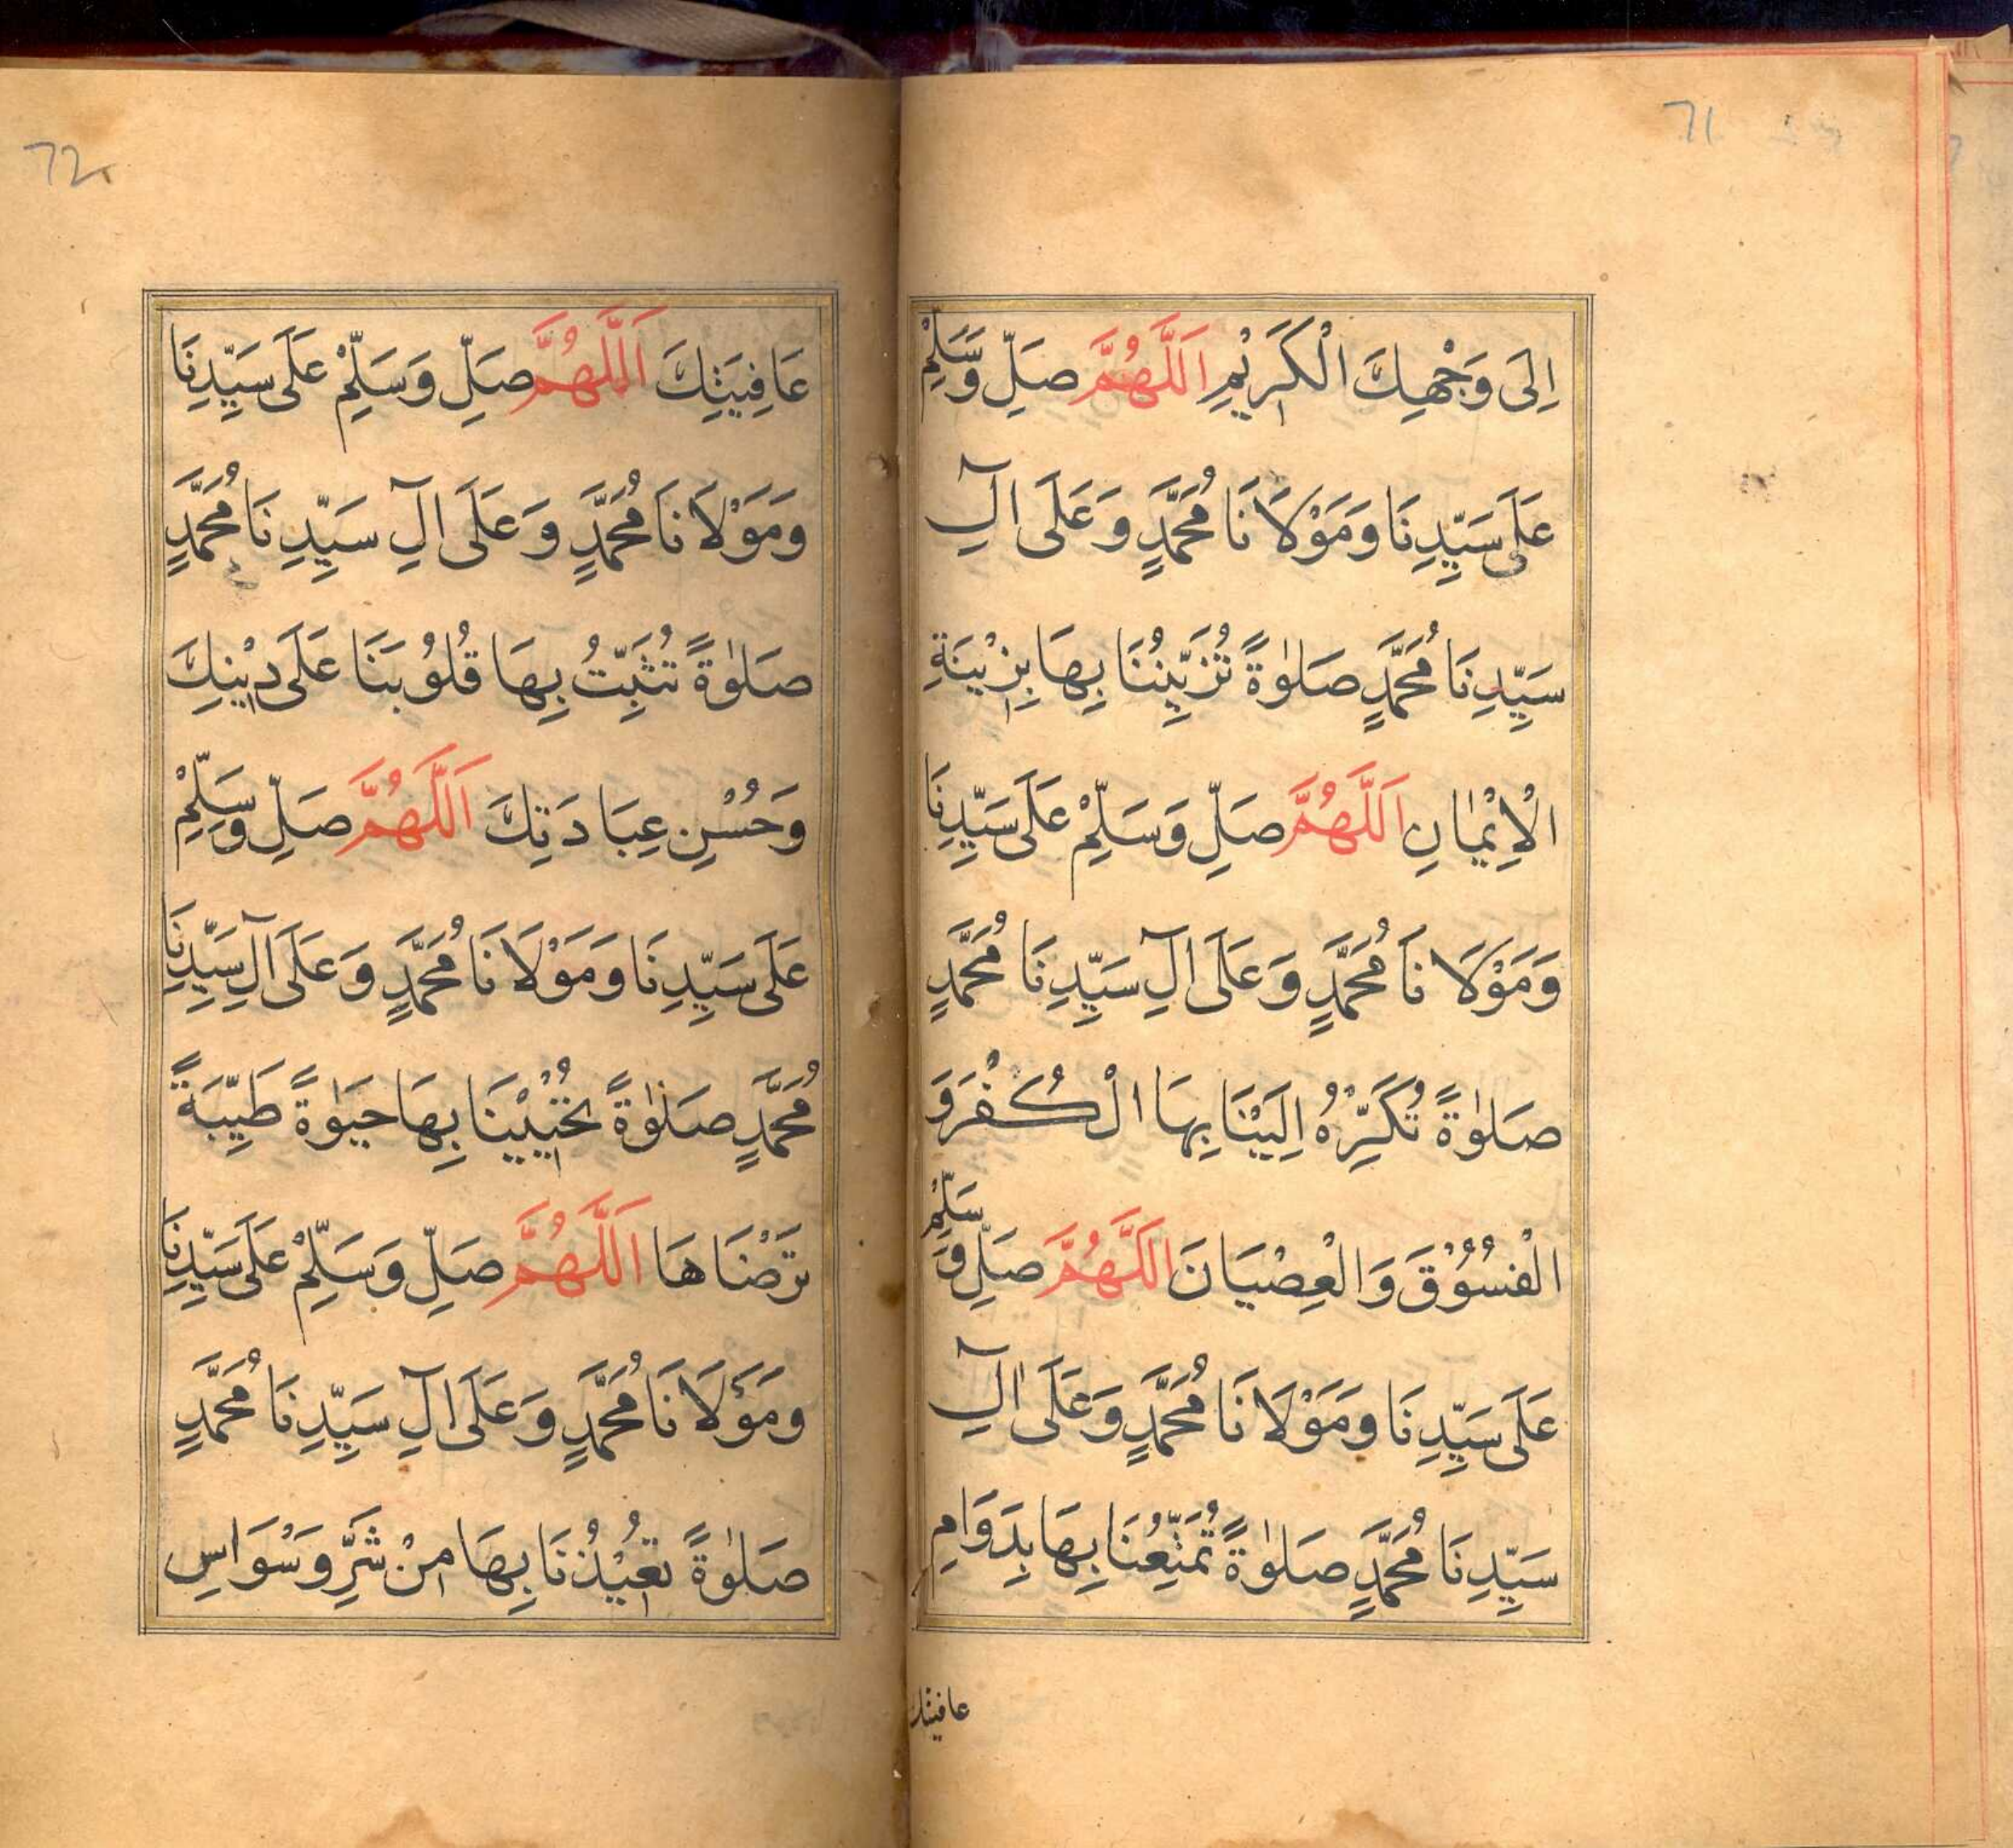 71
اِلَى وَجْهِكَ الْكَرِيْمِ اَللَّهُمَّ صَلِّ وَسَلِّمْ
عَلَى سَيِّدِنَا وَمَوْلَانَا مُحَمَّدٍ وَعَلَى آلِ
سَيِّدِنَا مُحَمَّدٍ صَلٰوةً تُزَيِّنُنَا بِهَا بِزِيْنَةِ
الْاِيْمٰانِ اَللَّهُمَّ صَلِّ وَسَلِّمْ عَلَى سَيِّدِنَا
وَمَوْلَانَا مُحَمَّدٍ وَعَلَى آلِ سَيِّدِنَا مُحَمَّدٍ
صَلٰوةً تُكَرِّهُ اِلَيْنَا بِهَا الْكُفْرَ وَ
الْفُسُوْقَ وَالْعِصْيَانَ اَللَّهُمَّ صَلِّ وَسَلِّمْ
عَلَى سَيِّدِنَا وَمَوْلَانَا مُحَمَّدٍ وَعَلَى آلِ
سَيِّدِنَا مُحَمَّدٍ صَلٰوةً تُمَتِّعُنَا بِهَا بِدَوَامِ
عافيتك
72
عَافِيَتِكَ اَللَّهُمَّ صَلِّ وَسَلِّمْ عَلَى سَيِّدِنَا
وَمَوْلَانَا مُحَمَّدٍ وَعَلَى آلِ سَيِّدِنَا مُحَمَّدٍ
صَلٰوةً تُثَبِّتُ بِهَا قُلُوْبَنَا عَلَى دِيْنِكَ
وَحُسْنِ عِبَادَتِكَ اَللَّهُمَّ صَلِّ وَسَلِّمْ
عَلَى سَيِّدِنَا وَمَوْلَانَا مُحَمَّدٍ وَعَلَى آلِ سَيِّدِنَا
مُحَمَّدٍ صَلٰوةً تُحْيِيْنَا بِهَا حَيٰوةً طَيِّبَةً
تَرْضَاهَا اَللَّهُمَّ صَلِّ وَسَلِّمْ عَلَى سَيِّدِنَا
وَمَوْلَانَا مُحَمَّدٍ وَعَلَى آلِ سَيِّدِنَا مُحَمَّدٍ
صَلٰوةً تُعِيْذُنَا بِهَا مِنْ شَرِّ وَسْوَاسِ